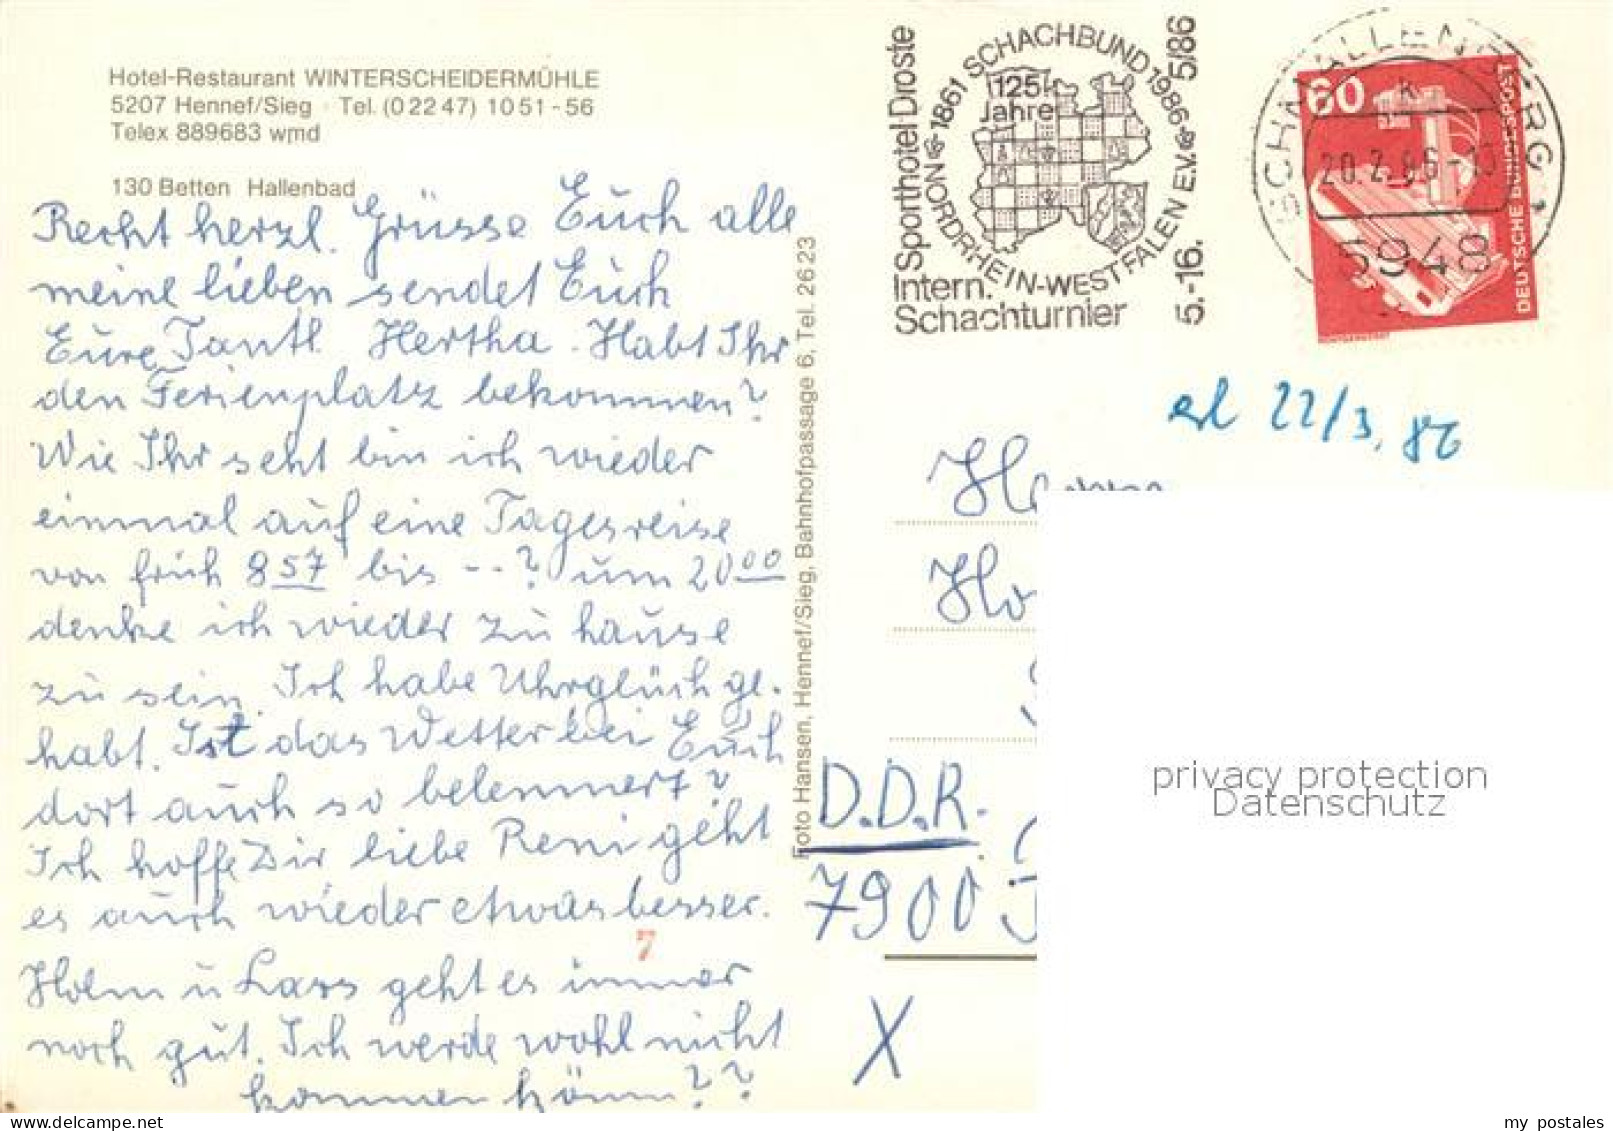 Hotel-Restaurant WINTERSCHEIDERMÜHLE
5207 Hennef/Sieg Tel. (0 22 47) 10 51 - 56
Telex 889683 wmd
130 Betten Hallenbad
Recht herzl. Grüsse Euch alle
meine lieben sendet Euch
Eure Tantl Hertha. Habt Ihr
den Ferienplatz bekommen?
Wie Ihr seht bin ich wieder
einmal auf eine Tagesreise
von früh 8 57 bis --? um 20 00
denke ich wieder zu hause
zu sein. Ich habe Uhrglück ge-
habt. Ist das Wetter bei Euch
dort auch so belemmert?
Ich hoffe Dir liebe Reni geht
es auch wieder etwas besser.
7
Holm u Lars geht es immer
noch gut. Ich werde wohl nicht
kommen könn??
Foto Hansen, Hennef/Sieg, Bahnhofpassage 6, Tel. 26 23
Sporthotel Droste
Intern.
Schachturnier
5.-16. 5/86
1861 SCHACHBUND 1986
NORDRHEIN-WESTFALEN E.V.
125
Jahre
SCHMALLENBERG 1
k
20.2.86-10
5948
60
DEUTSCHE BUNDESPOST
22/3. 86
Ho
D.D.R.
7900 J
X
privacy protection
Datenschutz
my postales